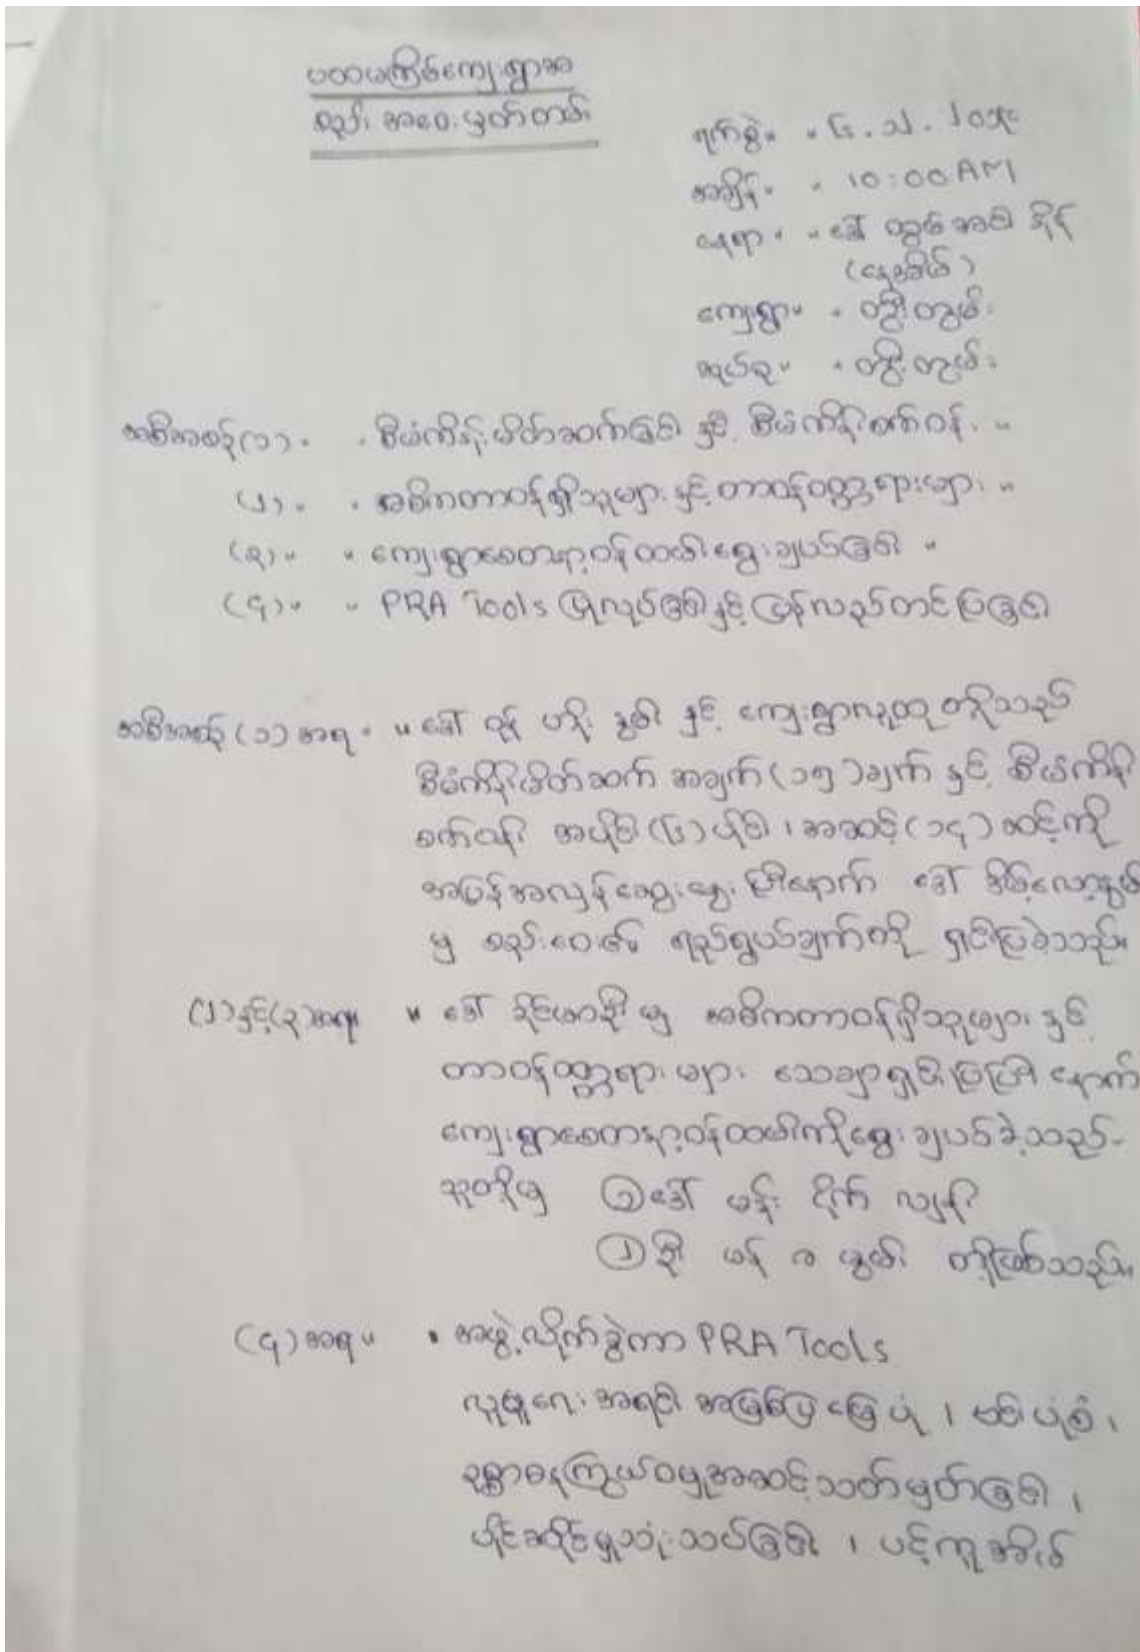 ပထမကြိမ်ကျေးရွာအ
စည်းအဝေးမှတ်တမ်း
ရက်စွဲ။ ။ ၆.၁.
အချိန်။ ။ 10:00 AM
နေရာ။ ။ ဒေါ်
(နေအိမ်)
ကျေးရွာ။ ။ တွီးတွမ်း
အုပ်စု။ ။ တွီးတွမ်း
အစီအစဉ်(၁)။ ။ စီမံကိန်းမိတ်ဆက်ခြင်း နှင့် စီမံကိန်းစက်ဝန်း ။
(၂)။ ။ အဓိကတာဝန်ရှိသူများ နှင့် တာဝန်ဝတ္တရားများ ။
(၃)။ ။ ကျေးရွာစေတနာ့ဝန်ထမ်းရွေးချယ်ခြင်း ။
(၄)။ ။ PRA Tools ပြုလုပ်ခြင်းနှင့် ပြန်လည်တင်ပြခြင်း
အစီအစဉ်(၁)အရ ။ ။ ဒေါ် နွမ်း နှင့် ကျေးရွာလူထု တို့သည်
စီမံကိန်းမိတ်ဆက် အချက်(၁၅)ချက် နှင့် စီမံကိန်း
စက်ဝန်း အပိုင်း(၆)ပိုင်း ၊ အဆင့်(၁၄)ဆင့်ကို
အပြန်အလှန်ဆွေးနွေးပြီးနောက် ဒေါ်
မှ စည်းဝေး၏ ရည်ရွယ်ချက်ကို ရှင်းပြခဲ့သည်။
(၂)နှင့်(၃)အရ။ ။ ဒေါ် မှ အဓိကတာဝန်ရှိသူများ နှင့်
တာဝန်ဝတ္တရားများ သေချာရှင်းပြပြီးနောက်
ကျေးရွာစေတနာ့ဝန်ထမ်းကိုရွေးချယ်ခဲ့သည်-
သူတို့မှ ① ဒေါ် မန်း ငိုက် လျန်း
② ဦး မန် ခ မွမ်း တို့ဖြစ်သည်။
(၄)အရ။ ။ အဖွဲ့လိုက်ခွဲကာ PRA Tools
လူမှုရေးအရင်းအမြစ်ပြမြေပုံ ၊ မိုင်းပုံစံ ၊
ဥစ္စာဓနကြွယ်ဝမှုအဆင့်သတ်မှတ်ခြင်း ၊
ပိုင်ဆိုင်မှုသုံးသပ်ခြင်း ၊ ပင့်ကူအိမ်